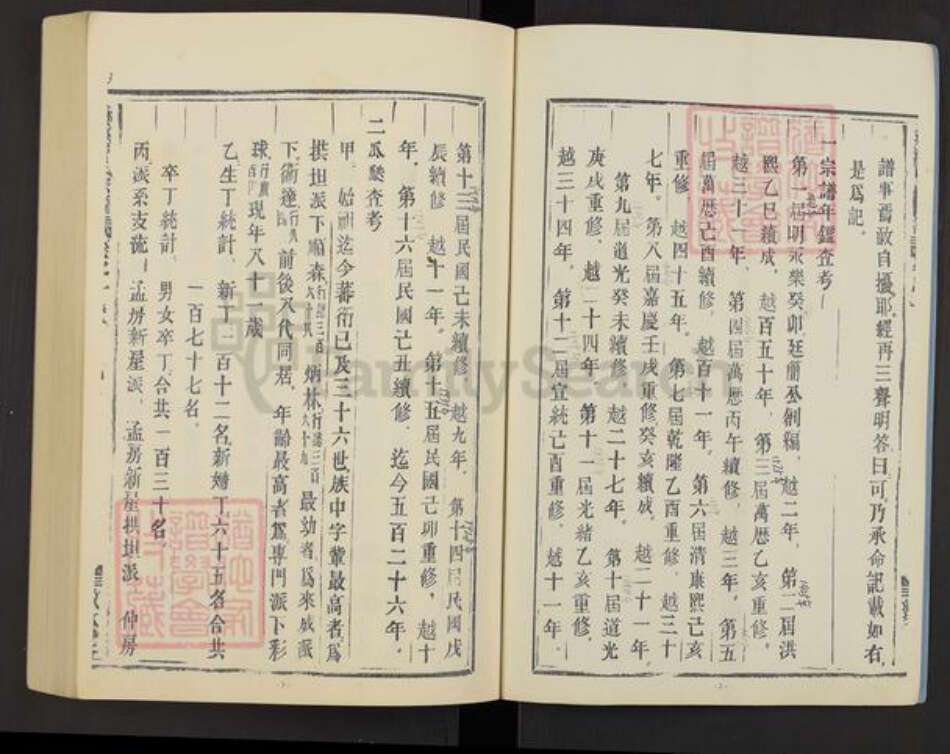 譜事焉敢自擾耶經再三聲明答曰可乃承命記載如右
是為記
一宗譜年鑑查考
第一屆明永樂癸卯廷 公創編 越二年 第二屆洪
熙乙巳續成 越百五十年 第三屆萬曆乙亥重修
越三十一年 第四屆萬曆丙午續修 越三年 第五
屆萬曆己酉續修 越百十一年 第六屆清康熙己亥
重修 越四十五年 第七屆乾隆乙酉重修 越三十
七年 第八屆嘉慶壬戌重修癸亥續成 越二十一年
第九屆道光癸未續修 越二十七年 第十屆道光
庚戌重修 越二十四年 第十一屆光緒乙亥重修
越三十四年 第十二屆宣統己酉重修 越十一年
第十三屆民國己未續修 越九年 第十四屆民國戊
辰續修 越十一年 第十五屆民國己卯重修 越十
年 第十六屆民國己丑續修 迄今五百二十六年
二瓜瓞查考
甲 始祖迄今蕃衍已及三十六世族中字輩最高者為
拱坦派下順森 炳林 最幼者為來成派
下衛達 前後八代同居 年齡最高者為專門派下彩
球 現年八十一歲
乙生丁統計 新丁一百十二名新婚丁六十五名合共
一百七十七名
卒丁統計 男女卒丁合共一百三十名
丙派系支流 孟房新屋派 孟房新屋拱坦派 仲房
FamilySearch